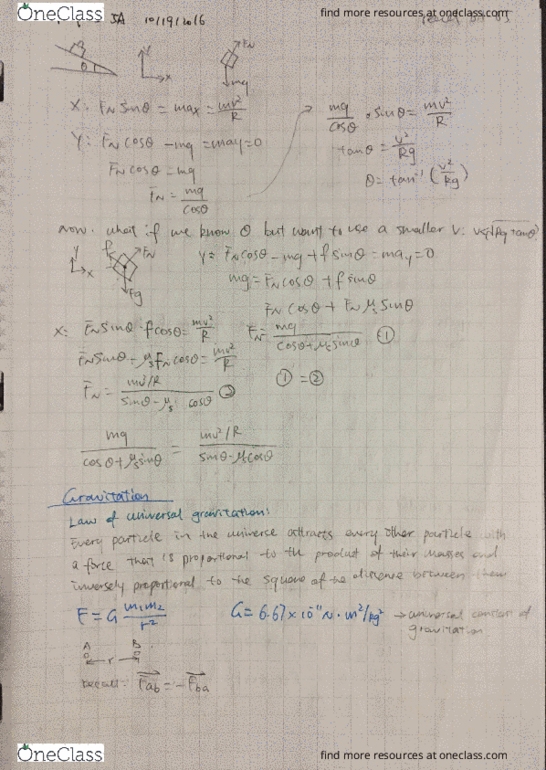 OneClass
find more resources at oneclass.com
5A 10/19/2016
θ
Y
x
FN
mg
X: FN sinθ = max = mv²/R
Y: FN cosθ - mg = may = 0
FN cosθ = mg
FN = mg/cosθ
mg/cosθ · sinθ = mv²/R
tanθ = v²/Rg
θ = tan⁻¹ (v²/Rg)
now, what if we know θ but want to use a smaller V: V<√(Rg tanθ)
Y
x
f
FN
Fg
Y: FN cosθ - mg + f sinθ = may = 0
mg = FN cosθ + f sinθ
FN cosθ + FN μs sinθ
FN = mg/(cosθ + μs sinθ) ①
X: FN sinθ - f cosθ = mv²/R
FN sinθ - μs FN cosθ = mv²/R
FN = (mv²/R)/(sinθ - μs cosθ) ②
① = ②
mg/(cosθ + μs sinθ) = (mv²/R)/(sinθ - μs cosθ)
Gravitation
Law of universal gravitation:
Every particle in the universe attracts every other particle with
a force that is proportional to the product of their masses and
inversely proportional to the square of the distance between them
F = G m₁m₂/r²
G = 6.67 × 10⁻¹¹ N · m²/kg² → universal constant of
gravitation
A B
r
Recall: Fab = - Fba
OneClass
find more resources at oneclass.com